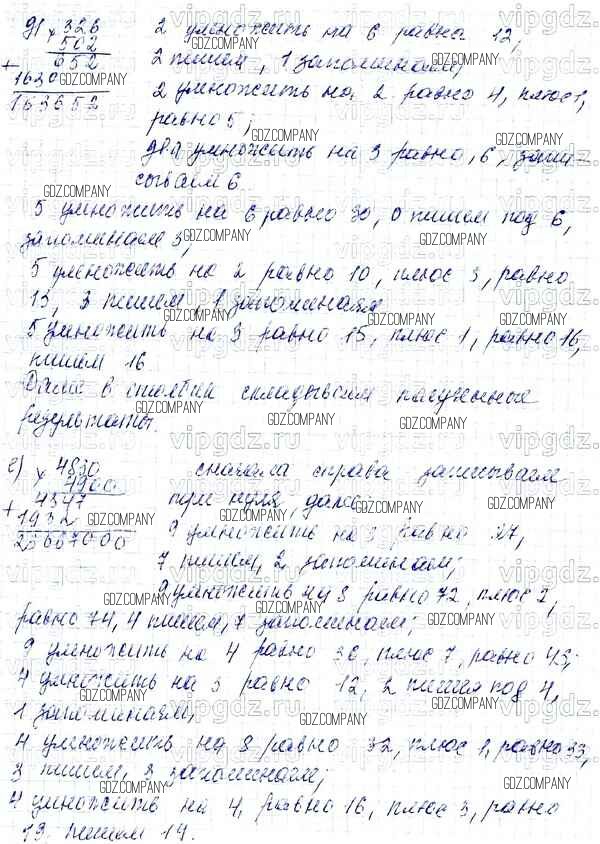 д) × 326 2 умножить на 6 равно 12,
502
652 2 пишем, 1 запоминаем;
+
1630
163652 2 умножить на 2 равно 4, плюс 1,
равно 5;
два умножить на 3 равно, 6, запи
сываем 6.
5 умножить на 6 равно 30, 0 пишем под 6,
запоминаем 3,
5 умножить на 2 равно 10, плюс 3, равно
13, 3 пишем, 1 запоминаем
5 умножить на 3 равно 15, плюс 1, равно 16,
пишем 16
Далее в столбик складываем полученные
результаты.
е) × 4830 сначала справа записываем
4900
4347 три нуля, далее
+
1932 9 умножить на 3 равно 27,
23667000
7 пишем, 2 запоминаем;
9 умножить на 8 равно 72, плюс 2,
равно 74, 4 пишем, 7 запоминаем;
9 умножить на 4 равно 36, плюс 7, равно 43;
4 умножить на 3 равно 12, 2 пишем под 4,
1 запоминаем,
4 умножить на 8 равно 32, плюс 1, равно 33,
3 пишем, 3 запоминаем;
4 умножить на 4, равно 16, плюс 3, равно
19, пишем 19.
GDZ.COMPANY
vipgdz.ru